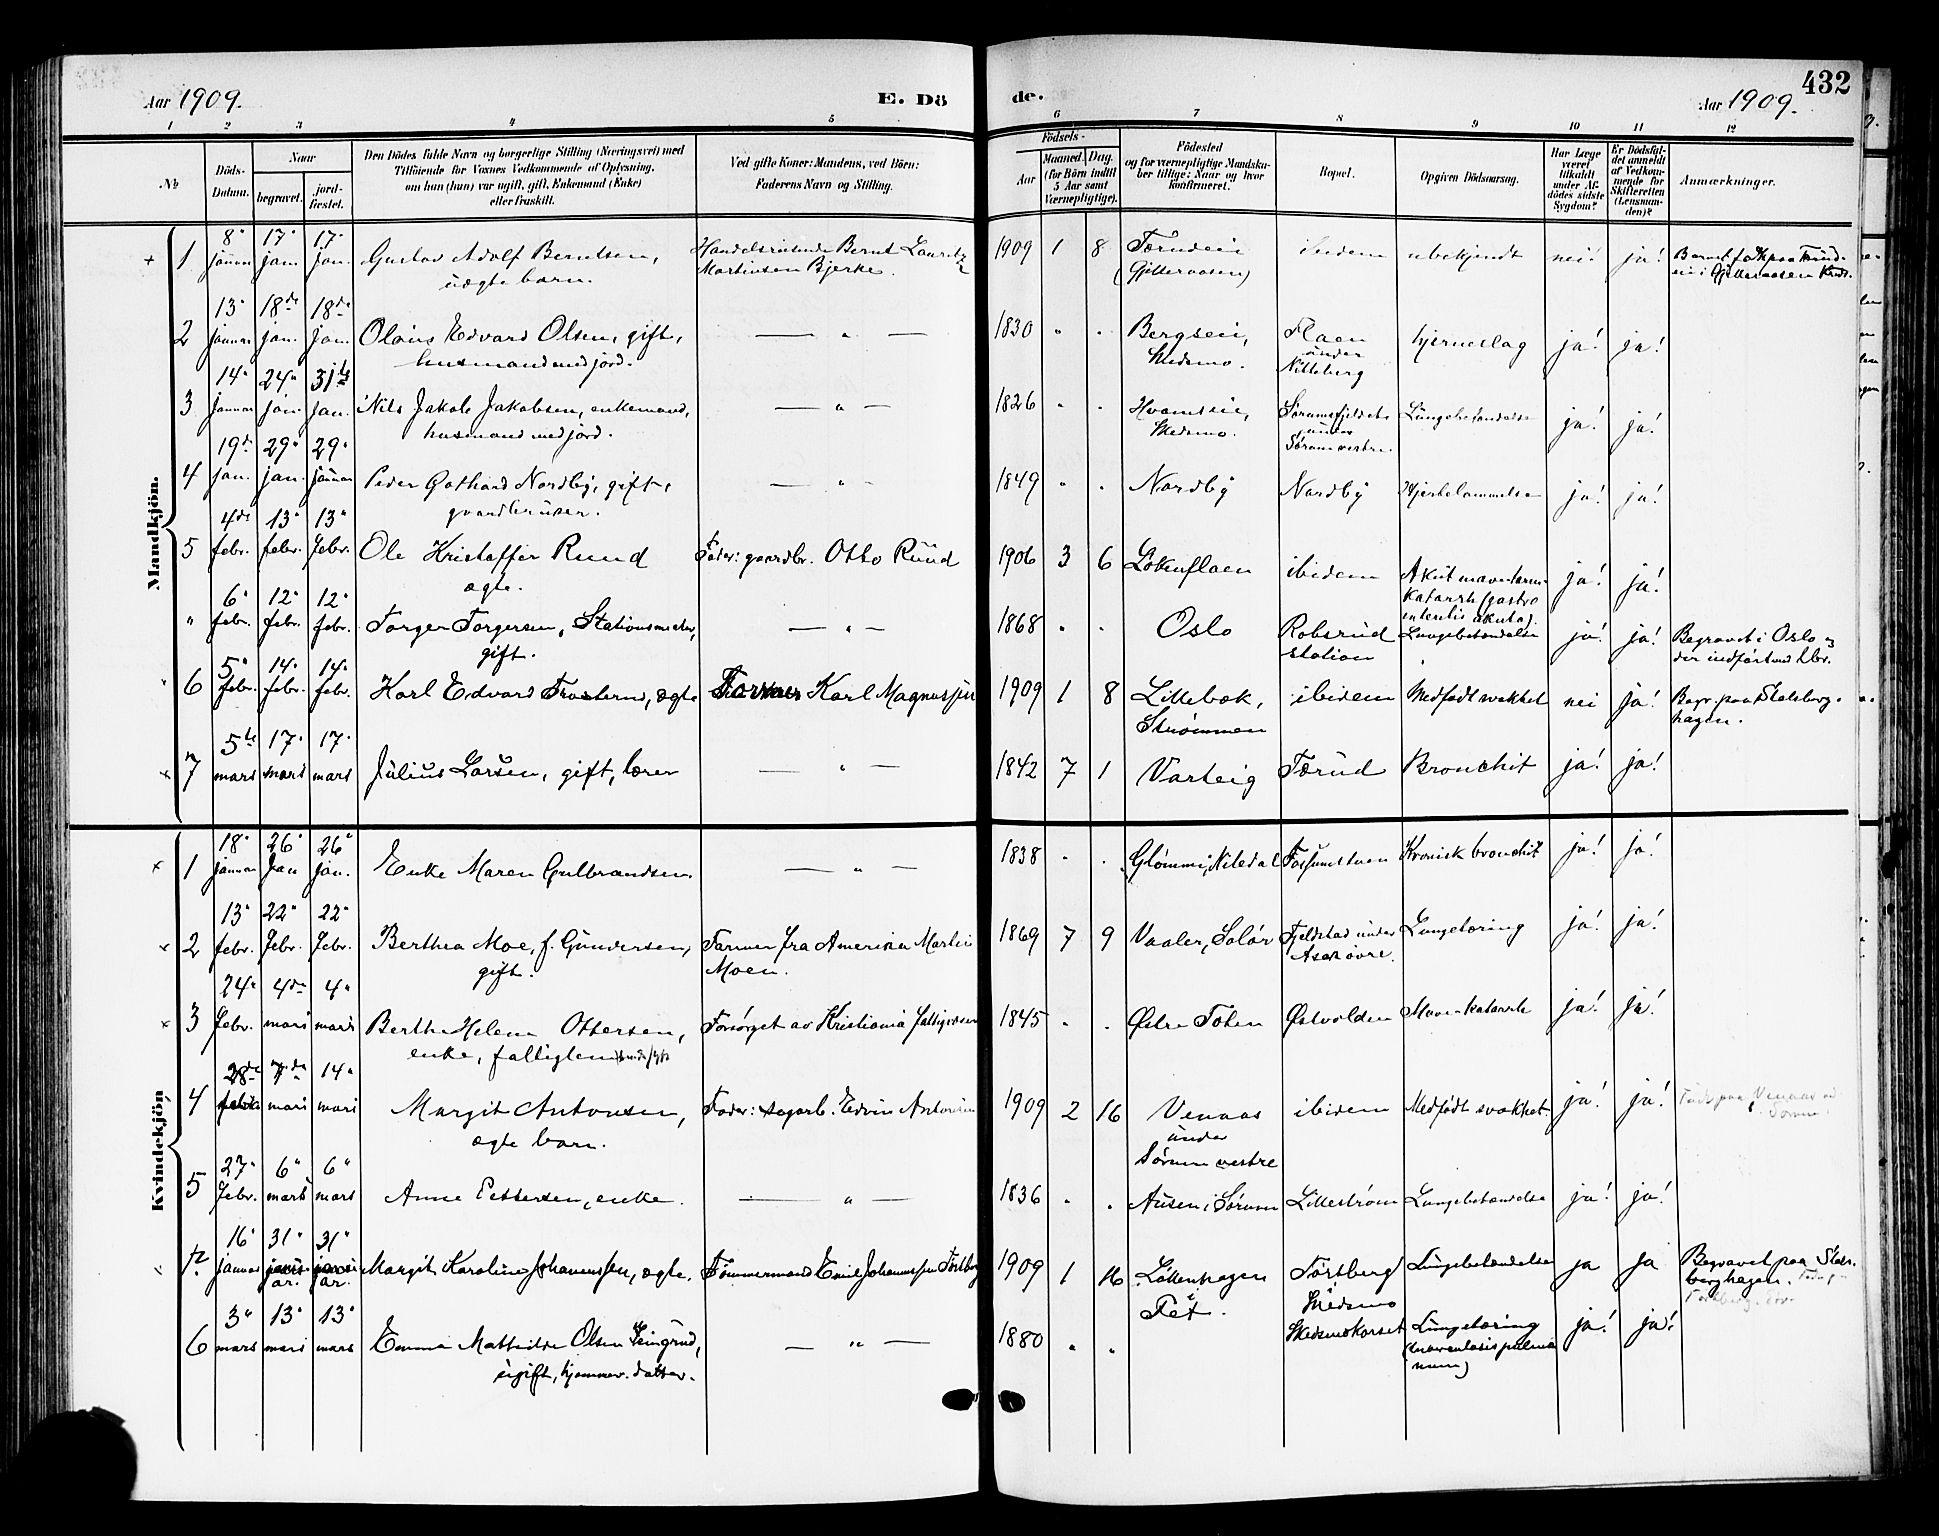 Aar 1909.
E. Dö
de.
Aar 1909.
432
1 2 3 4 5 6 7 8 9 10 11 12
№
Döds-Datum.
Naar
begravet.
jord-fæstet.
Den Dödes fulde Navn og borgerlige Stilling (Næringsvei) med
Tilföiende for Voxnes Vedkommende af Oplysning,
om han (hun) var ugift, gift, Enkemand (Enke)
eller fraskilt.
Ved gifte Koner: Mandens, ved Börn:
Faderens Navn og Stilling.
Födsels-
Aar
Maaned. Dag.
(for Börn indtil
5 Aar samt
Værnepligtige).
Födested
og for værnepligtige Mandska-
ber tillige: Naar og hvor
konfirmeret.
Bopæl.
Opgiven Dödsaarsag.
Har Læge
været
tilkaldt
under Af-
dödes sidste
Sygdom?
Er Dödsfal-
det anmeldt
af Vedkom-
mende for
Skifteretten
(Lensman-
den)?
Anmærkninger.
Mandkjön.
1 8 januar 17 jan. 17 jan. Gustav Adolf Berntsen, uægte barn. Handelsreisende Bernt Lauritz Martinsen Bjerke. 1909 1 8 (Gjelleraasen) ibidem ubekjendt nei! ja!
2 13 januar 18de jan. 18de jan. Olaus Edvard Olsen, gift, husmand med jord. — " — 1830 " " Bergseie, Skedsmo. Flaen under Nitteberg hjerneslag ja! ja!
3 14 januar 24 jan. 31te jan. Nils Jakob Jakobsen, enkemand, husmand med jord. — " — 1826 " " Hvamseie, Skedsmo. Sørumsfjeldet under Sørum vestre. Lungebetændelse ja! ja!
4 19de jan. 29 jan. 29 januar Peder Gothard Nordby, gift, gaardbruger. — " — 1849 " " Nordby Nordby Hjertelammelse ja! ja!
5 4de febr. 13 febr. 13 febr. Ole Kristoffer Ruud ægte. Fader: gaardbr. Otto Ruud 1906 3 6 Løkenflaen ibidem Akut mavetarmkatarrh (gastro enteritis akuta). ja! ja!
" 6 febr. 12 febr. 12 febr. Torger Torgersen, Stationsmester, gift. — " — 1868 " " Oslo Robsrud station Lungebetændelse ja! ja! Begravet i Oslo og der indført
6 5 febr. 14 febr. 14 febr. Karl Edvard ægte Karl Magnussen 1909 1 8 Lillebæk, Strømmen ibidem Medfødt svakhet nei ja! Begr. paa Stalsberg-hagen.
7 5te mars 17 mars 17 mars Julius Larsen, gift, lærer — " — 1842 7 1 Varteig Tærud Bronchit ja! ja!
Kvindekjön
1 18 januar 26 jan 26 jan. Enke Maren Gulbrandsen — " — 1838 " " Glømmi, Nitedal Kronisk bronchit ja! ja!
2 13 febr. 22 febr. 22 febr. Berthea Moe, f. Gundersen, gift. Farmer fra Amerika Martin Moen. 1869 7 9 Vaaler, Solør Fjeldstad under Asak øvre. Lungetæring ja! ja!
3 24 febr. 4de mars 4 mars Berthe Helene Ottersen, enke, fattiglem Forsørget av Kristiania fattigvæsen 1845 " " Østre Toten Østvolden Mavekatarrh ja! ja!
4 28de febr. 7de mars 14 mars Margit Antonsen, ægte barn. Fader: sagarb. Edvin Antonsen 1909 2 16 Venaas under Sørum vestre ibidem Medfødt svakhet ja! ja!
5 27 febr. 6 mars 6 mars Anne Pettersen, enke. — " — 1836 " " Ausen i Sørum Lillestrøm Lungebetændelse ja! ja!
16 januar 31 31 Margit Karoline Johannessen, ægte. Tømmermand Emil Johannessen Tørtberg 1909 1 16 Løkenhagen i Fet. Tørtberg Skedsmo Lungebetændelse ja ja Begravet paa Stalsberghagen.
6 3 mars 13 mars 13 mars Emma Mathilde Olsen ugift, hjemmev. datter. — " — 1880 " " Skedsmokorset Lungetæring (tuberculosis pulmonum) ja! ja!